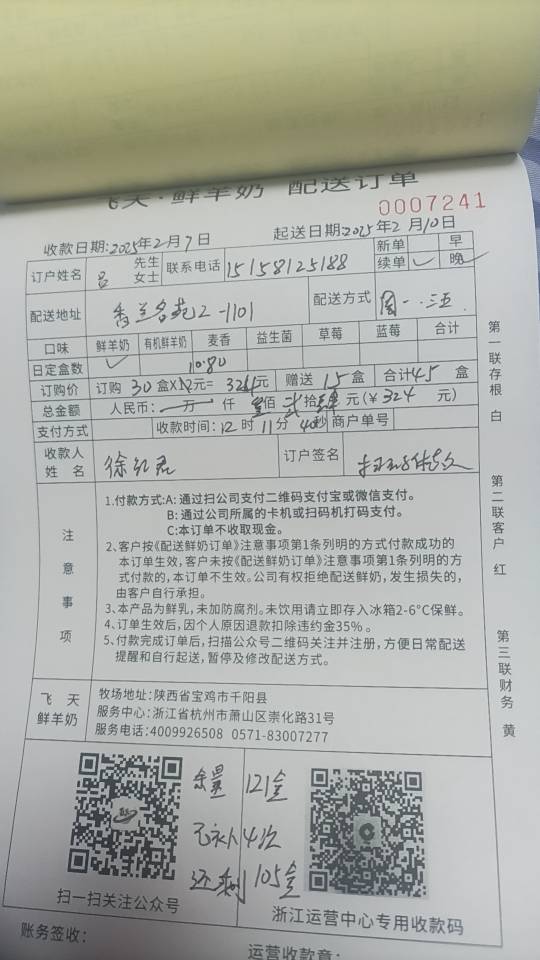 飞天·鲜羊奶 配送订单
0007241
收款日期:2025年2月7日 起送日期:2025年2月10日
订户姓名 吕 先生 女士 联系电话 15158125188 新单 早 续单 ✓ 晚 ✓
配送地址 2-1101 配送方式 周一.三.五
口味 鲜羊奶 有机鲜羊奶 麦香 益生菌 草莓 蓝莓 合计
日定盒数 ✓ 10.80
订购价 订购 30 盒X 元= 324元 赠送 15 盒 合计45 盒
总金额 人民币: 万 仟 佰 拾 元(￥324 元)
支付方式 收款时间:12 时 11分 40秒 商户单号
收款人姓名 徐 订户签名
注意事项
1.付款方式:A:通过扫公司支付二维码支付宝或微信支付。
B:通过公司所属的卡机或扫码机打码支付。
C:本订单不收取现金。
2、客户按《配送鲜奶订单》注意事项第1条列明的方式付款成功的
本订单生效,客户未按《配送鲜奶订单》注意事项第1条列明的方
式付款的,本订单不生效。公司有权拒绝配送鲜奶,发生损失的,
由客户自行承担。
3、本产品为鲜乳,未加防腐剂。未饮用请立即存入冰箱2-6°C保鲜。
4、订单生效后,因个人原因退款扣除违约金35%。
5、付款完成订单后,扫描公众号二维码关注并注册,方便日常配送
提醒和自行起送,暂停及修改配送方式。
飞天 鲜羊奶
牧场地址:陕西省宝鸡市千阳县
服务中心:浙江省杭州市萧山区崇化路31号
服务电话:4009926508 0571-83007277
余量 121盒
4次
还剩 105盒
扫一扫关注公众号
浙江运营中心专用收款码
账务签收:
运营收款章:
第一联存根 白
第二联客户 红
第三联财务 黄